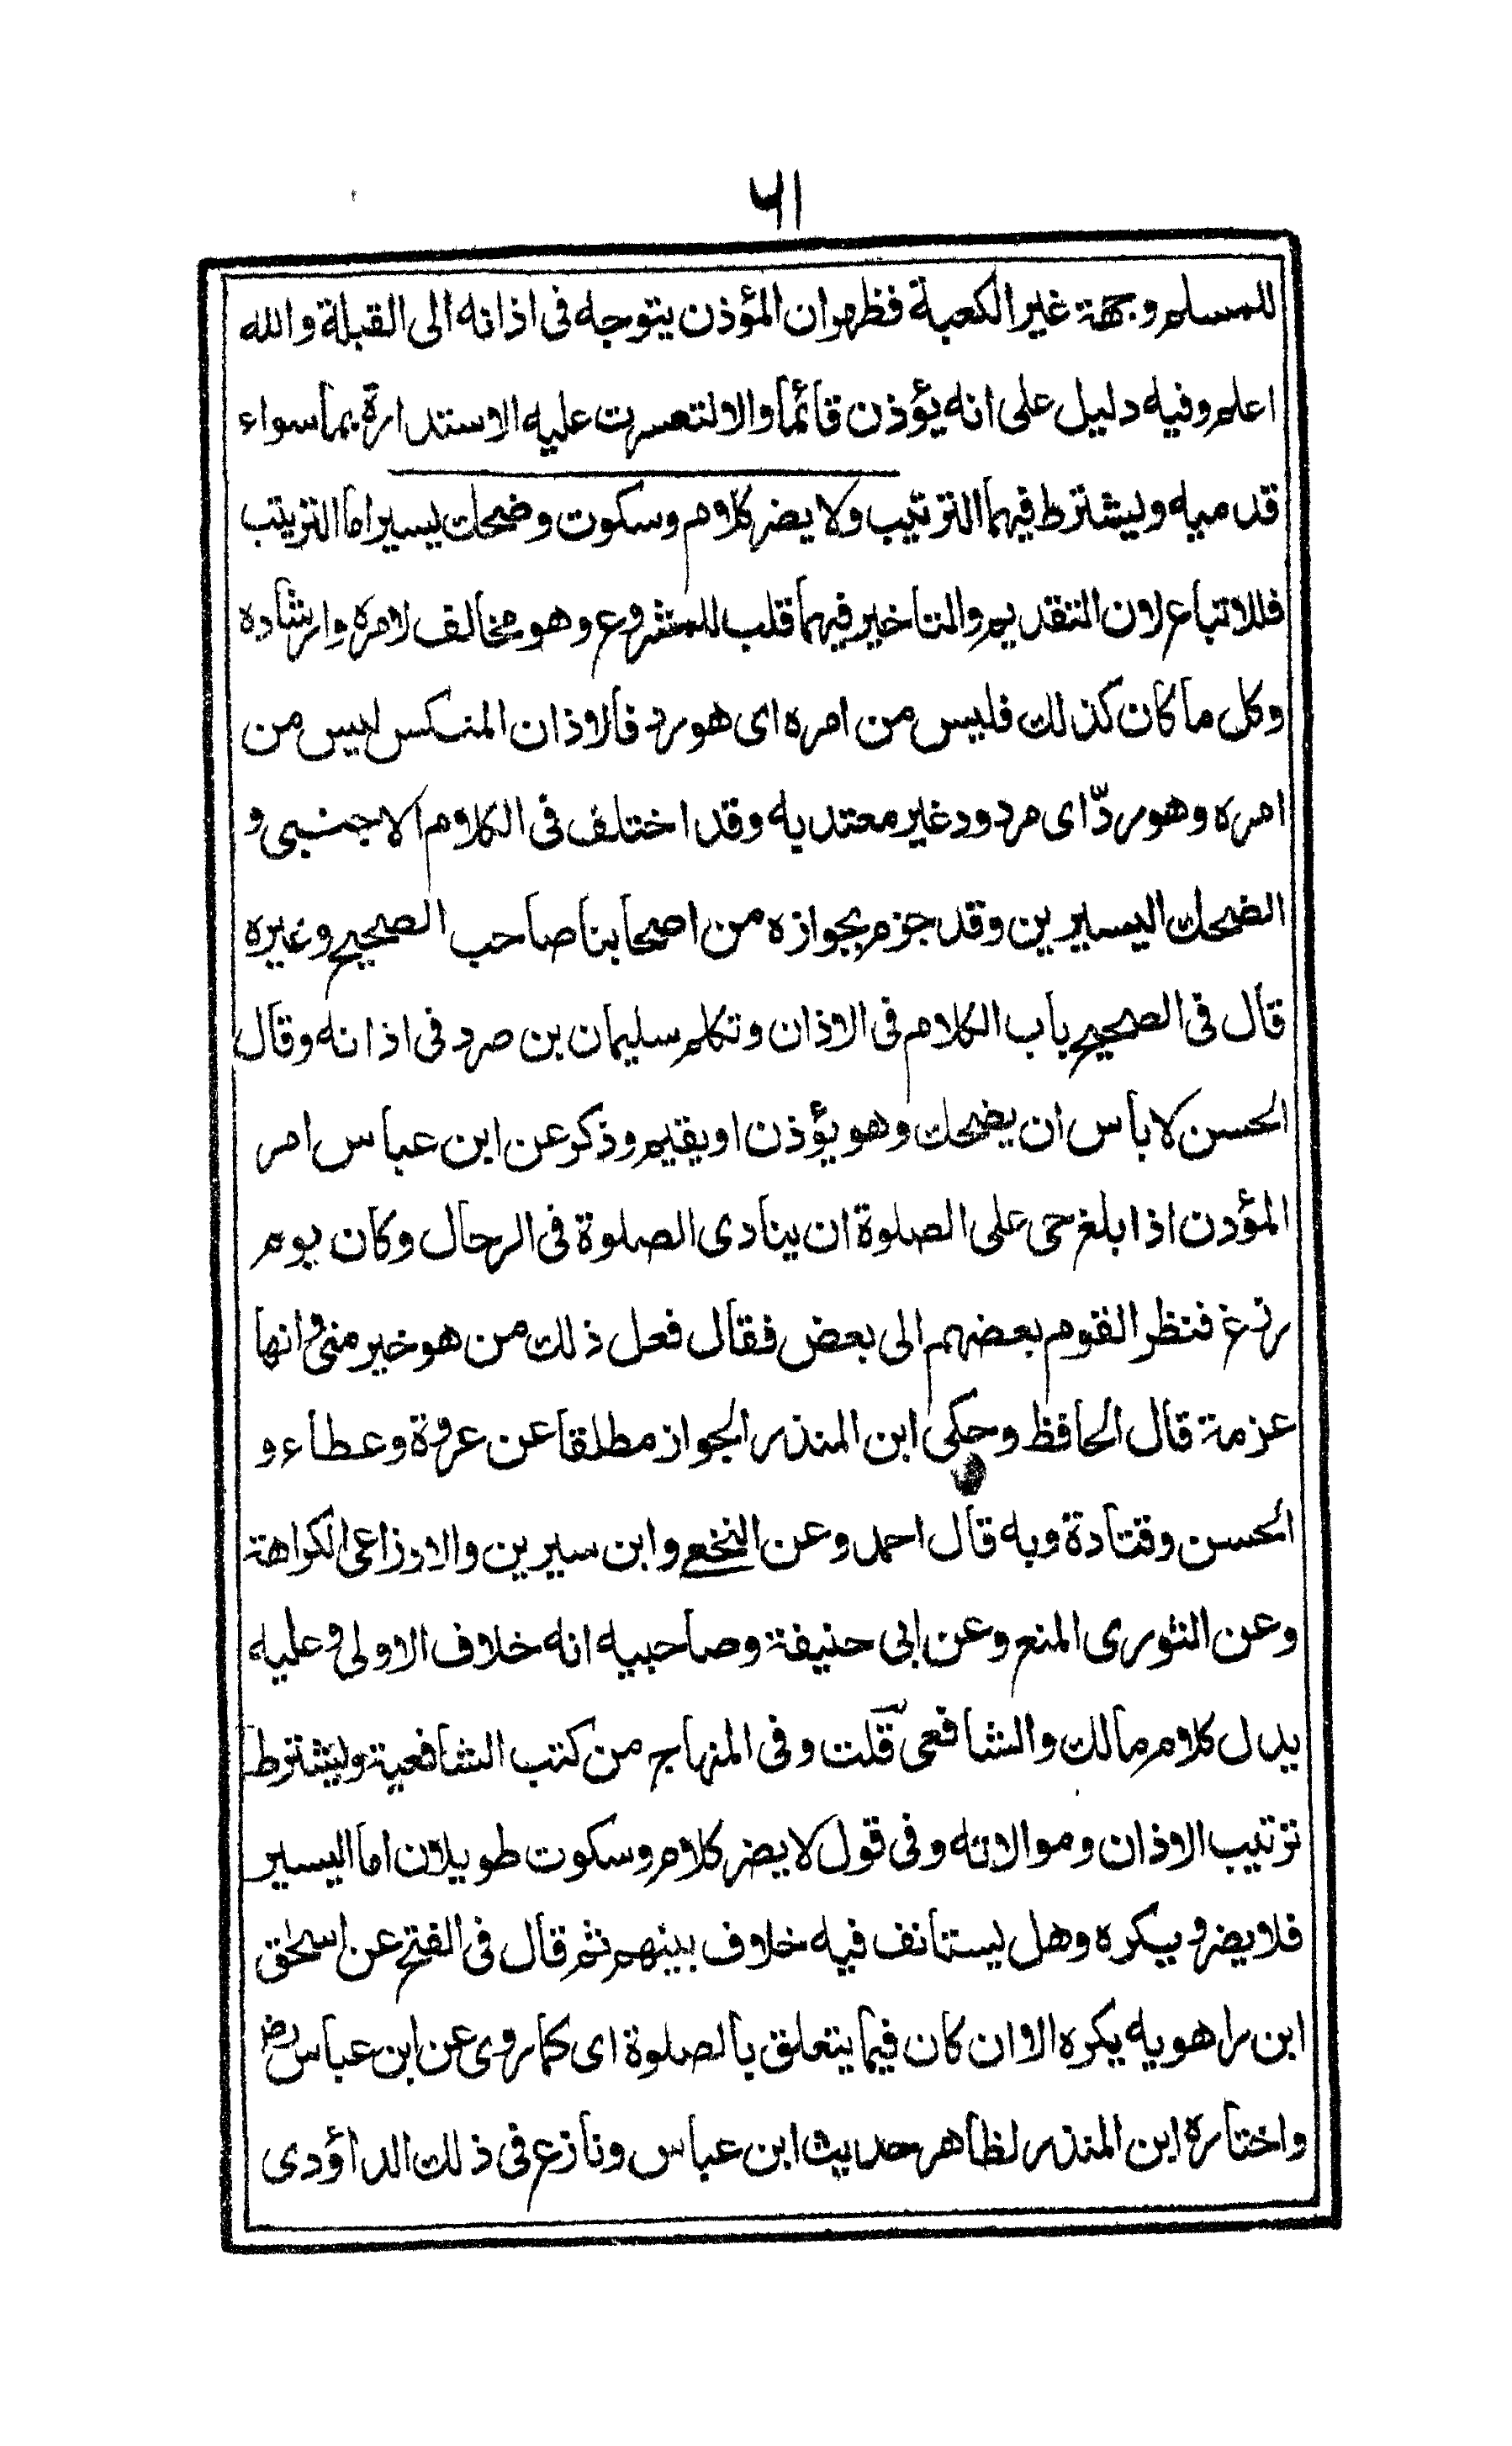 ٦١
للمسلم وجهة غير الكعبة فظهر ان المؤذن يتوجه فى اذانه الى القبلة والله
اعلم وفيه دليل على انه يؤذن قائما والا لتعسرت عليه الاستدارة بها سواء
قدميه ويشترط فيهما الترتيب ولا يضر كلام وسكوت وضحك يسير اما الترتيب
فللاتباع لان التقديم والتاخير فيهما قلب للمشروع وهو مخالف لامره وارشاده
وكل ما كان كذلك فليس من امره اى هو رد فالاذان المنكس ليس من
امره وهو ردّ اى مردود غير معتد به وقد اختلف فى الكلام الاجنبى و
الضحك اليسيرين وقد جزم بجوازه من اصحابنا صاحب الصحيح وغيره
قال فى الصحيح باب الكلام فى الاذان وتكلم سليمان بن صرد فى اذانه وقال
الحسن لا بأس ان يضحك وهو يؤذن او يقيم وذكر عن ابن عباس امر
المؤذن اذا بلغ حى على الصلوة ان ينادى الصلوة فى الرحال وكان يوم
رزغ فنظر القوم بعضهم الى بعض فقال فعل ذلك من هو خير منى وانها
عزمة قال الحافظ وحكى ابن المنذر الجواز مطلقا عن عروة وعطاء و
الحسن وقتادة وبه قال احمد وعن النخعى وابن سيرين والاوزاعى الكراهة
وعن الثورى المنع وعن ابى حنيفة وصاحبيه انه خلاف الاولى وعليه
يدل كلام مالك والشافعى قلت وفى المنهاج من كتب الشافعية ويشترط
ترتيب الاذان وموالاته وفى قول لا يضر كلام وسكوت طويلان اما اليسير
فلا يضر ويكره وهل يستانف فيه خلاف بينهم ثم قال فى الفتح عن اسحٰق
ابن راهويه يكره الا ان كان فيما يتعلق بالصلوة اى كما روى عن ابن عباس رض
واختاره ابن المنذر لظاهر حديث ابن عباس ونازع فى ذلك الداؤدى